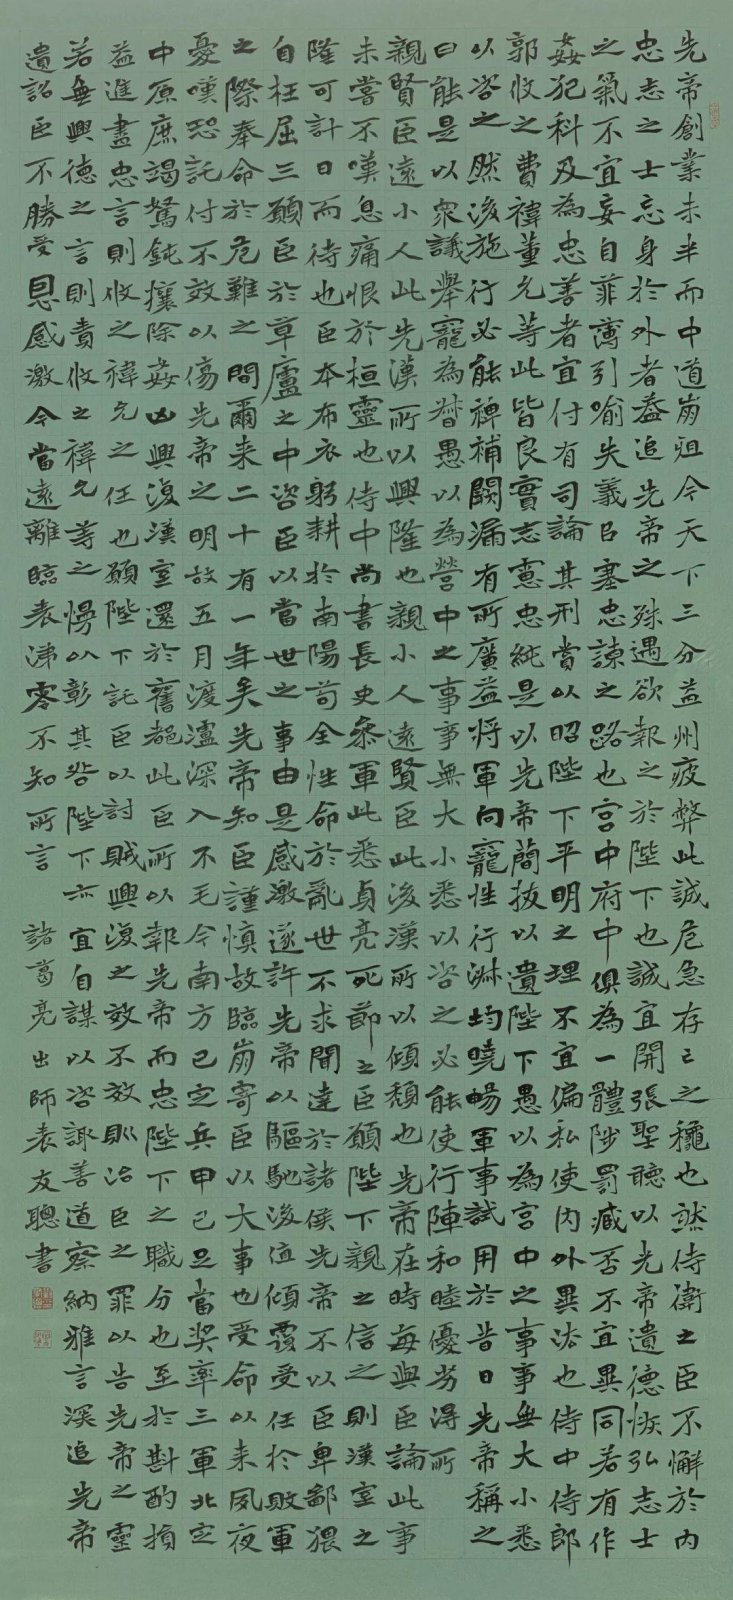 先帝創業未半而中道崩殂今天下三分益州疲弊此誠危急存亡之穐也然侍衛之臣不懈於內
忠志之士忘身於外者蓋追先帝之殊遇欲報之於陛下也誠宜開張聖聽以光帝遺德恢弘志士
之氣不宜妄自菲薄引喻失義以塞忠諫之路也宮中府中俱為一體陟罰臧否不宜異同若有作
姦犯科及為忠善者宜付有司論其刑賞以昭陛下平明之理不宜偏私使內外異法也侍中侍郎
郭攸之費禕董允等此皆良實志慮忠純是以先帝簡拔以遺陛下愚以為宮中之事事無大小悉
以咨之然後施行必能裨補闕漏有所廣益將軍向寵性行淑均曉暢軍事試用於昔日先帝稱之
曰能是以眾議舉寵為督愚以為營中之事事無大小悉以咨之必能使行陣和睦優劣得所
親賢臣遠小人此先漢所以興隆也親小人遠賢臣此後漢所以傾頹也先帝在時每與臣論此事
未嘗不嘆息痛恨於桓靈也侍中尚書長史參軍此悉貞亮死節之臣願陛下親之信之則漢室之
隆可計日而待也臣本布衣躬耕於南陽苟全性命於亂世不求聞達於諸侯先帝不以臣卑鄙猥
自枉屈三顧臣於草廬之中咨臣以當世之事由是感激遂許先帝以驅馳後值傾覆受任於敗軍
之際奉命於危難之間爾来二十有一年矣先帝知臣謹慎故臨崩寄臣以大事也受命以来夙夜
憂嘆恐託付不效以傷先帝之明故五月渡瀘深入不毛今南方已定兵甲已足當奖率三軍北定
中原庶竭駑鈍攘除姦凶興復漢室還於舊都此臣所以報先帝而忠陛下之職分也至於斟酌損
益進盡忠言則攸之禕允之任也願陛下託臣以討賊興復之效不效則治臣之罪以告先帝之靈
若無興德之言則責攸之禕允等之慢以彰其咎陛下亦宜自謀以咨諏善道察納雅言深追先帝
遺詔臣不勝受恩感激今當遠離臨表涕零不知所言 諸葛亮出師表友聰書